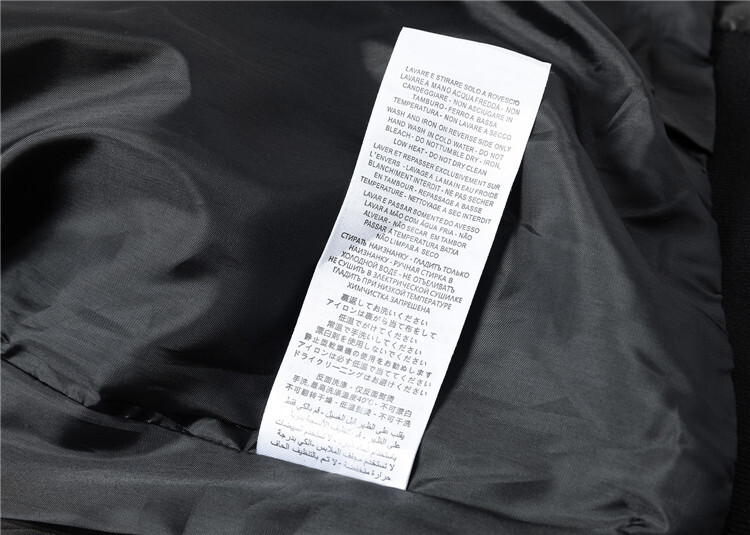 LAVARE E STIRARE SOLO A ROVESCIO
LAVARE A MANO ACQUA FREDDA - NON
CANDEGGIARE - NON ASCIUGARE IN
TAMBURO - FERRO A BASSA
TEMPERATURA - NON LAVARE A SECCO
WASH AND IRON ON REVERSE SIDE ONLY
HAND WASH IN COLD WATER - DO NOT
BLEACH - DO NOT TUMBLE DRY - IRON,
LOW HEAT - DO NOT DRY CLEAN
LAVER ET REPASSER EXCLUSIVEMENT SUR
L'ENVERS - LAVAGE A LA MAIN EAU FROIDE
BLANCHIMENT INTERDIT - NE PAS SECHER
EN TAMBOUR - REPASSAGE A BASSE
TEMPERATURE - NETTOYAGE A SEC INTERDIT
LAVAR E PASSAR SOMENTE DO AVESSO
LAVAR A MÃO COM ÁGUA FRIA - NÃO
ALVEJAR - NÃO SECAR EM TAMBOR
PASSAR A TEMPERATURA BATXA
NÃO LIMPAR A SECO
СТИРАТЬ НАИЗНАНКУ - ГЛАДИТЬ ТОЛЬКО
НАИЗНАНКУ - РУЧНАЯ СТИРКА В
ХОЛОДНОЙ ВОДЕ - НЕ ОТБЕЛИВАТЬ
НЕ СУШИТЬ В ЭЛЕКТРИЧЕСКОЙ СУШИЛКЕ
ГЛАДИТЬ ПРИ НИЗКОЙ ТЕМПЕРАТУРЕ
ХИМЧИСТКА ЗАПРЕЩЕНА
裏返してお洗いください
アイロンは裏から当て布をして
低温でがけてください
常温で手洗いしてください
漂白剤を使用しないでください
静止型乾燥機の使用をお勧めします
アイロンは必す低温で当ててください
ドライクリーニングはお避けください
反面洗涤 - 仅反面熨烫
手洗,最高洗涤温度40℃ - 不可漂白
不可翻转干燥 - 低温熨烫 - 不可干洗
يقلب على الظهر قبل الغسيل - قم بالكي فقط
على الظهر -
لا تستخدم مجفف الملابس - الكي بدرجة
حرارة منخفضة - لا تم بالتنظيف الجاف